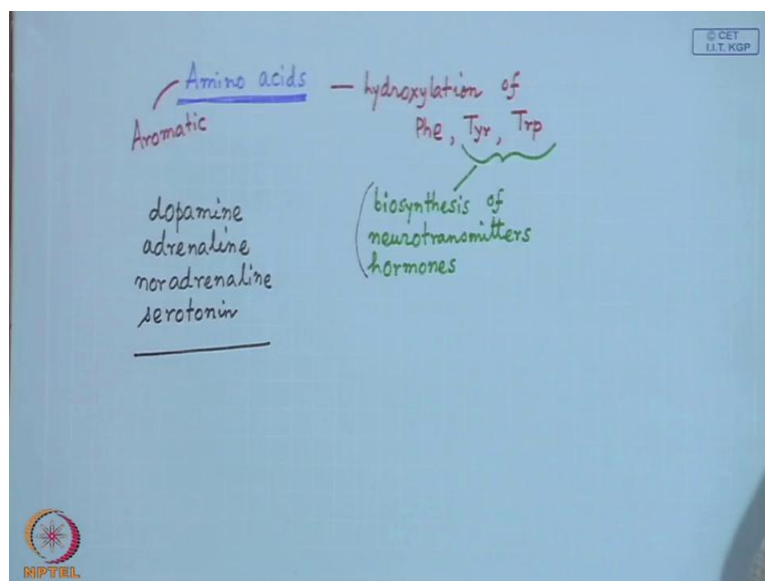 © CET
I.I.T. KGP
Amino acids — hydroxylation of
Aromatic
Phe, Tyr, Trp
dopamine
adrenaline
noradrenaline
serotonin
biosynthesis of
neurotransmitters
hormones
NPTEL